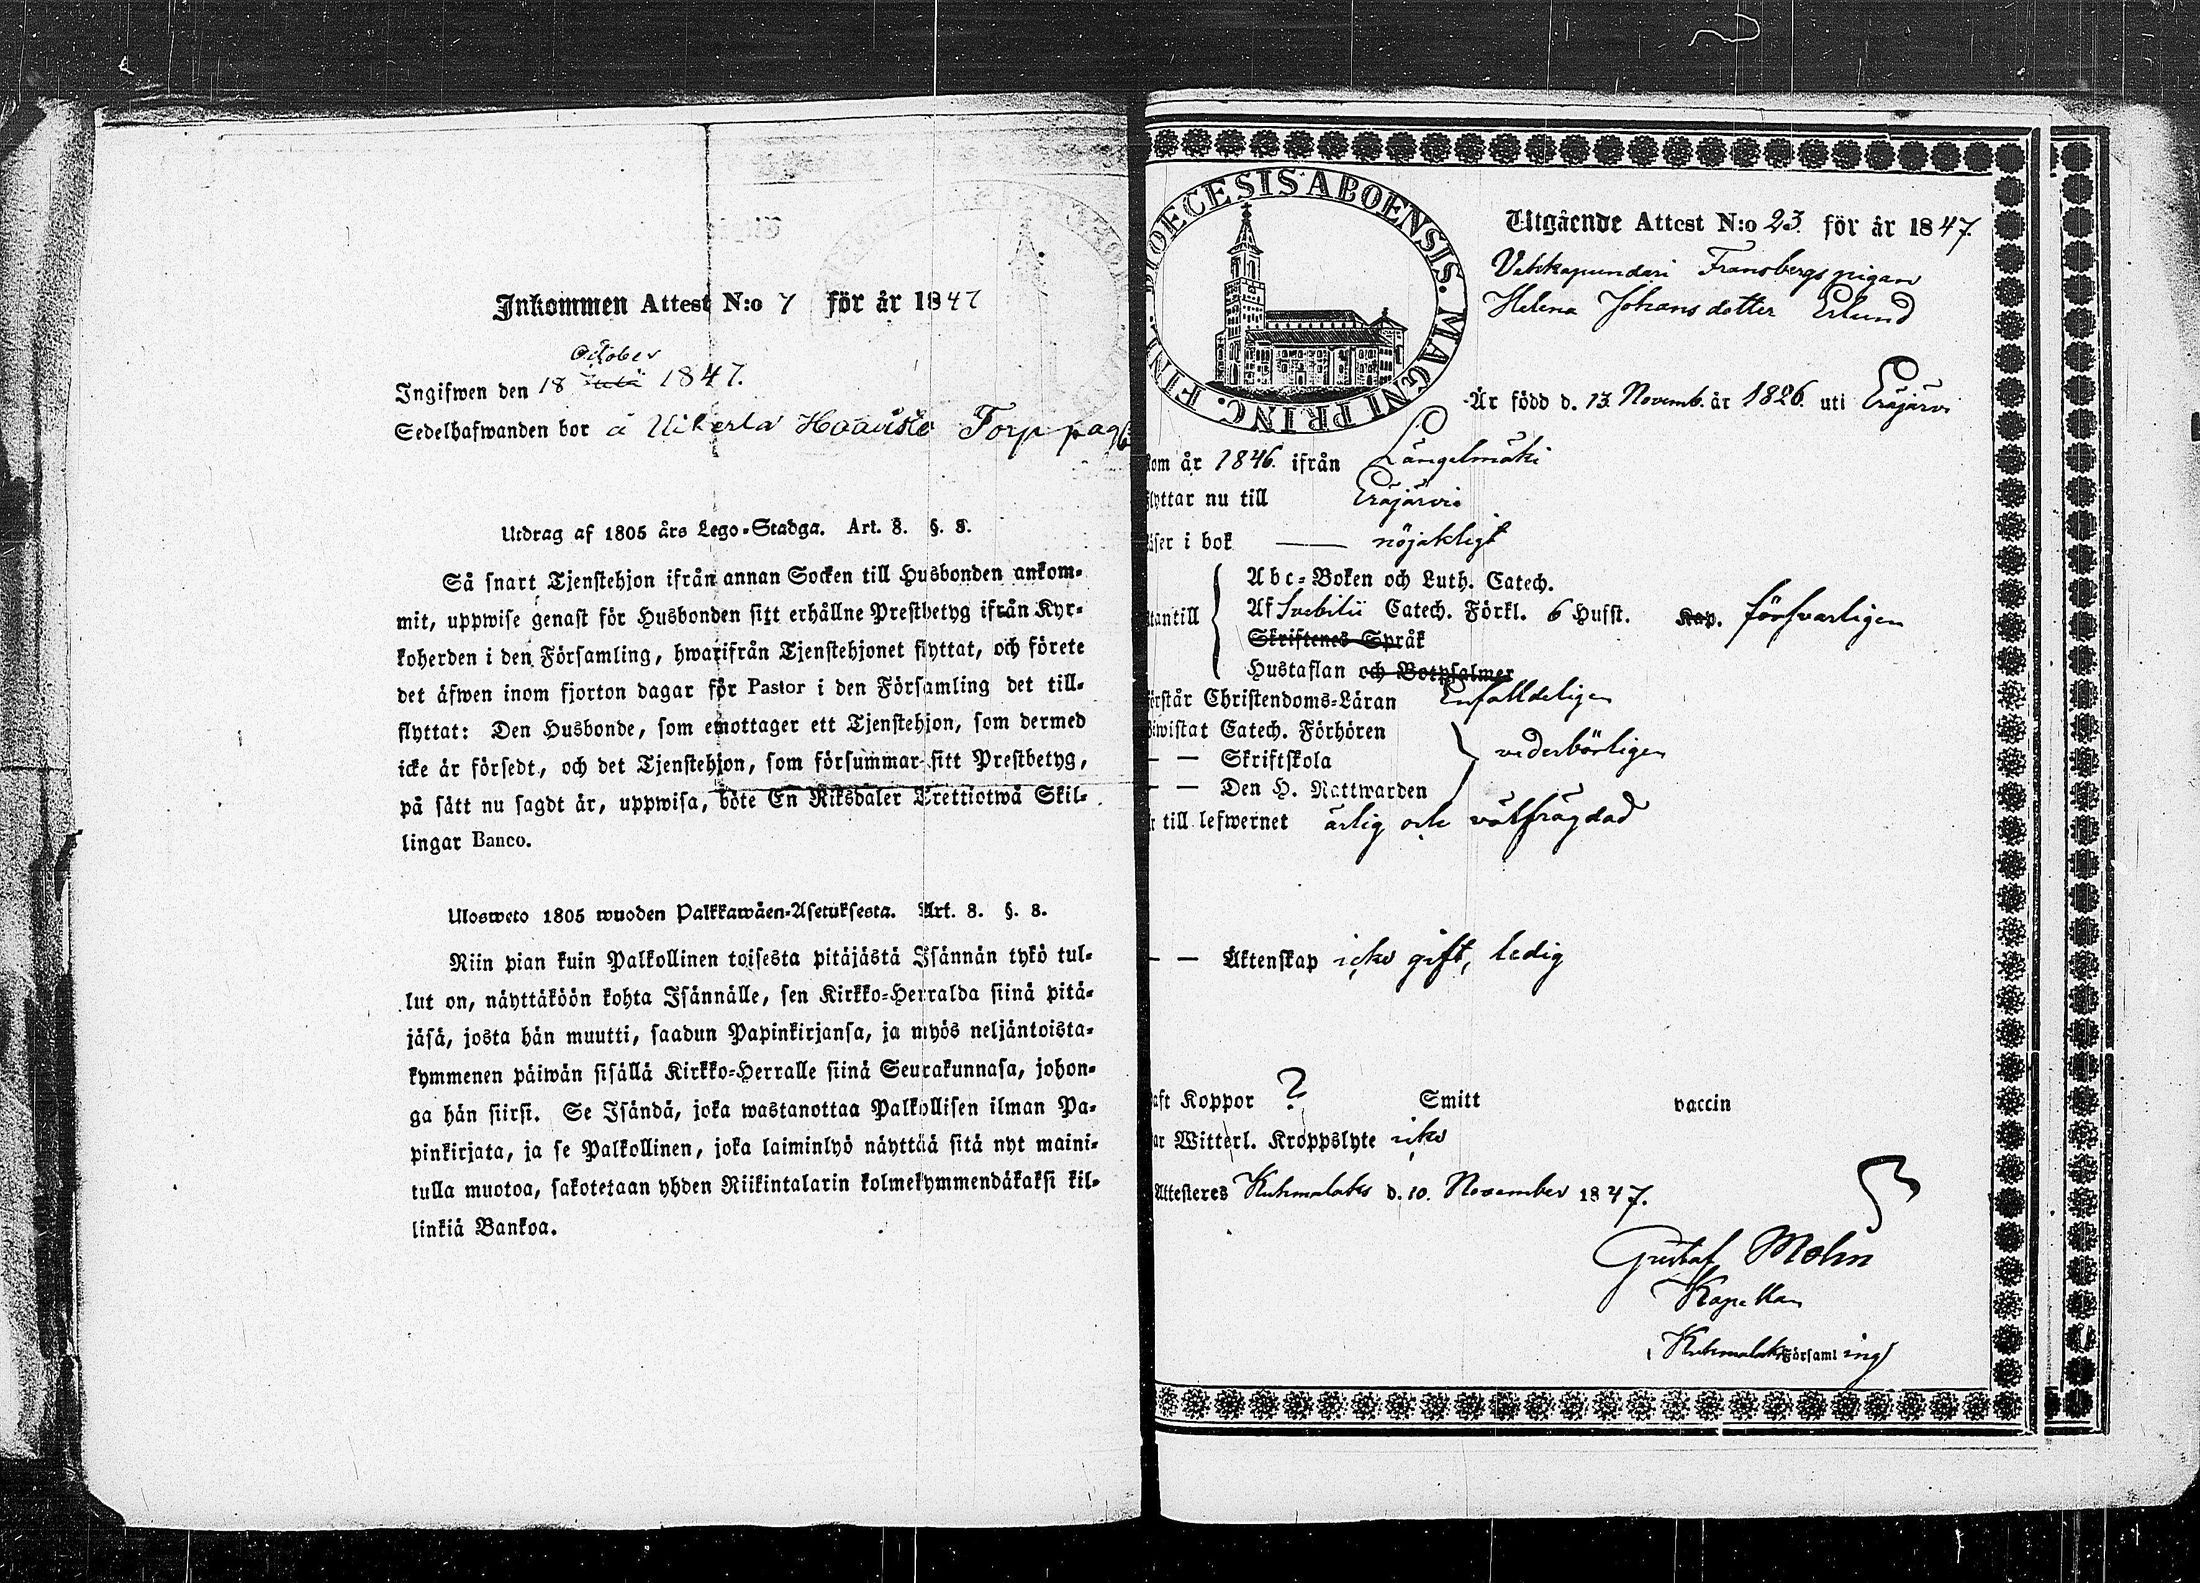 Inkommen Attest N:o 7 för år 1847
October
Ingifwen den 18 1847.
Sedelhafwanden bor å Uiherla Haavisto Torp
Utdrag af 1805 års Lego-Stadga. Art. 8. §. 8.
Så snart Tjenstehjon ifrån annan Socken till Husbonden ankom-
mit, uppwise genast för Husbonden sitt erhållne Prestbetyg ifrån Kyr-
koherden i den Församling, hwarifrån Tjenstehjonet flyttat, och förete
det äfwen inom fjorton dagar för Pastor i den Församling det till-
flyttat: Den Husbonde, som emottager ett Tjenstehjon, som dermed
icke är försedt, och det Tjenstehjon, som försummar sitt Prestbetyg,
på sätt nu sagdt är, uppwisa, böte En Riksdaler Trettiotwå Skil-
lingar Banco.
Ulosweto 1805 wuoden Palkkawäen-Asetuksesta. Art. 8. §. 8.
Niin pian kuin Palkollinen toisesta pitäjästä Isännän tykö tul-
lut on, näyttäköön kohta Isännälle, sen Kirkko-Herralda siinä pitä-
jäsä, josta hän muutti, saadun Papinkirjansa, ja myös neljäntoista-
kymmenen päiwän sisällä Kirkko-Herralle siinä Seurakunnasa, johon-
ga hän siirsi. Se Isändä, joka wastanottaa Palkollisen ilman Pa-
pinkirjata, ja se Palkollinen, joka laiminlyö näyttää sitä nyt maini-
tulla muotoa, sakotetaan yhden Riikintalarin kolmekymmendäkaksi kil-
linkiä Bankoa.
DIOECESIS ABOENSIS. MAGNI PRINC. FINL.
Utgående Attest N:o 23 för år 1847.
Vehkapundari Fransbergs pigan
Helena Johansdotter Erlund
Är född d. 13. Novemb. år 1826. uti Eräjärvi
kom år 1846. ifrån Längelmäki
flyttar nu till Eräjärvi
läser i bok —— nöjaktligt
Abc-Boken och Luth. Catech.
utantill Af Svebilii Catech. Förkl. 6 Hufst. Kap. försvarligen
Skriftenes Språk
Hustaflan och Botpsalmer
förstår Christendoms-Läran Enfalldeligen
Biwistat Catech. Förhören
— — Skriftskola vederbörligen
— — Den H. Nattwarden
är till lefwernet ärlig och välfrägdad
— — Äktenskap icke gift, ledig
haft Koppor ? Smitt vaccin
har Witterl. Kroppslyte icke
Attesteres Kuhmalaks d. 10. November 1847.
Gustaf Molin
Kapellan
Kuhmalaks Församling